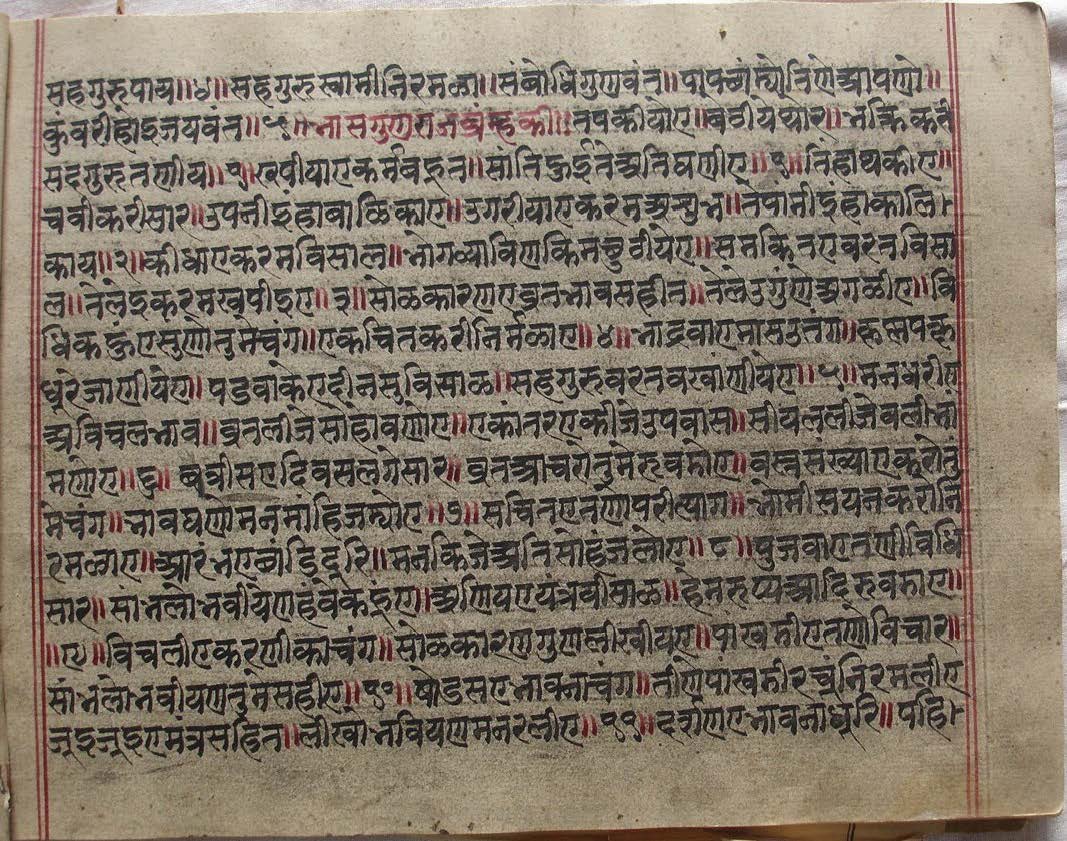 सहगुरुपाय॥४॥सहगुरुस्वामीनिरमळा॥संबोधिगुणवंत॥पापखांम्योतिणेआपणो॥
कुंवरीहोइजयवंत॥५॥भासगुणराजब्रंम्हकी॥तपकीयोए॥
सदगुरुतणीय॥१॥खपीयाएकर्मबहुत॥सांतिहुईतेअतिघणीए॥
चवीकरीसार॥उपनीइहाबाळिकाए॥उगरीयाएकरमअसुभ॥तेपामीइहांकालि
काय॥२॥कीधाएकरमविसाल॥भोगव्याविणकिमछुटीयेए॥समकितएवरतविसा
ल॥तेलेइकरमखपीइए॥३॥सोळकारणएव्रतभावसहीत॥तेलेउगुणेअगळीए॥वि
धिकहुंएसुणोतुमेचंग॥एकचितकरीनिर्मळाए॥४॥भाद्रवाएमासउतंग॥
धुरेजाणीयेए॥पडवाकेएदीनसुविसाळ॥सहगुरुवरतवखांणीयेए॥५॥मनधरीए
अविचलभाव॥व्रतलीजेसोहावणोए॥एकांतरएकीजेउपवास॥सीयललीजे
मणेए॥६॥बत्रीसएदिवसलगेसार॥व्रतआचरोतुमेरुवडोए॥वस्त्रसंख्याएकरोतु
मेचंग॥भावघणोमनमांहिजम्योए॥७॥सचितएतणोपरीत्याग॥भोमीसयनकरोनि
रमळाए॥आरंभएछांडिदुरि॥मनकिजेअतिसोहजलोए॥८॥पुजवाएतणीविधि
सार॥सांभलोभवीयणहंवेकहुए॥आंणियएयंत्रवीसाळ॥हेमरुप्यआदिरुवडाए॥
॥९॥विचलीएकरणीकाचंग॥सोळकारणगुणलीखीयए॥पांखडीएतणोविचार॥
सांभलोभवीयणतुमेसहीए॥१०॥षोडसएभावनाचंग॥तीणेपांखडीरचुनिरमलीए
जुइजुइएमंत्रसहित॥लीखोभवियणमनरलीए॥११॥दर्शणएभावनाधुरि॥पहि